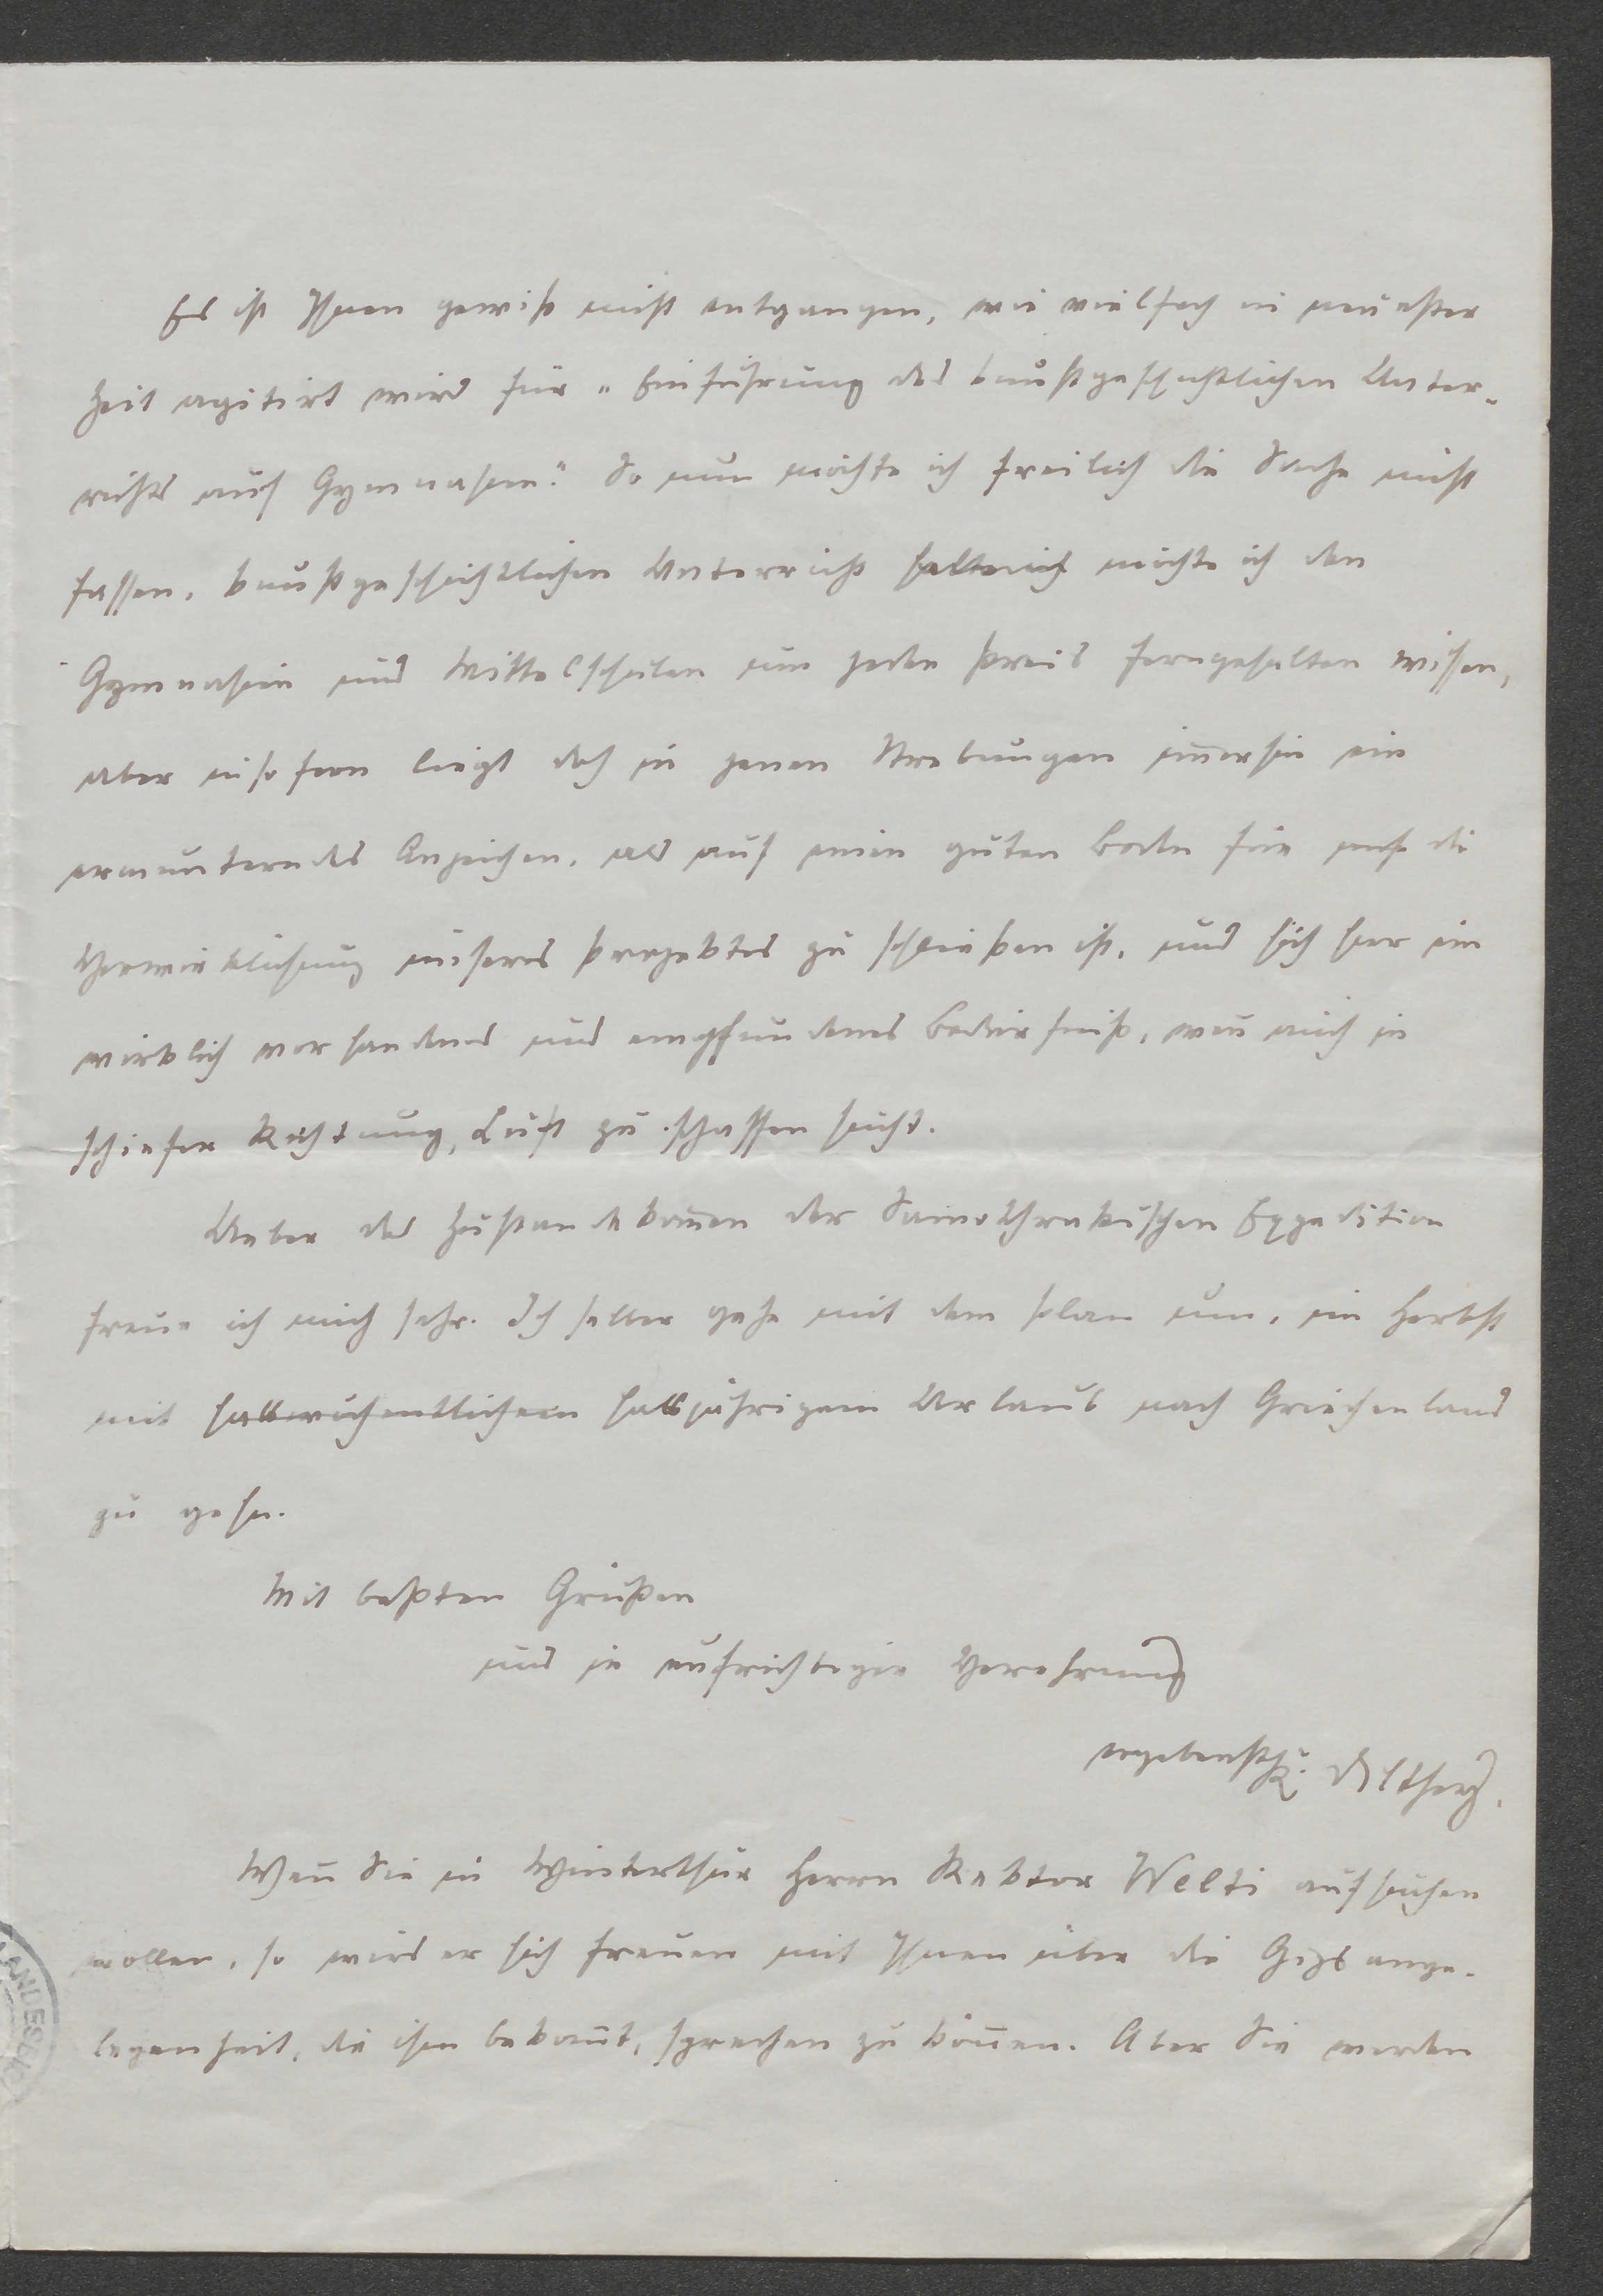 Es ist Ihnen gewiß nicht entgangen, wie vielfach in neuester
Zeit agitirt wird für „Einführung des kunstgeschichtlichen Unter-
richts auf Gymnasien“. So nun möchte ich freilich die Sache nicht
fassen, kunstgeschichtlichen Unterricht halte ich möchte ich den
Gymnasien und Mittelschulen um jeden Preis ferngehalten wissen,
aber insofern liegt doch in jenen Strebungen im̅erhin ein
ermunterndes Anzeichen, als auf einen guten Boden für auch die
Verwirklichung unseres Projektes zu schließen ist, und sich hier ein
wirklich vorhandenes und empfundenes Bedürfniß, wen̅ auch in
schiefer Richtung, Luft zu schaffen sucht.
Ueber das Zustandekom̅en der Samothrakischen Expedition
freue ich mich sehr. Ich selber gehe mit dem Plan um, im Herbst
mit halbwöchentlichem halbjährigem Urlaub nach Griechenland
zu gehn.
Mit besten Grüßen
und in aufrichtiger Verehrung
ergebenst K. Dilthey.
Wen̅ Sie in Winterthur Herrn Rektor Welti aufsuchen
wollen, so wird er sich freuen mit Ihnen über die Gipsange-
legenheit, die ihm bekan̅t, sprechen zu kön̅en. Aber Sie werden